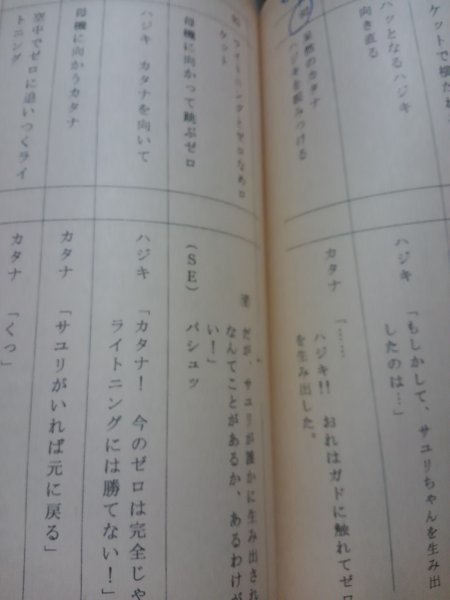 ケットで横たわ
ハッとなるハジキ
向き直る
ハジキ 「もしかして、サユリちゃんを生み出
したのは…」
呆然のカタナ
ハジキを睨みつける
カタナ 「……
ハジキ!! おれはガドに触れてゼロ
を生み出した。
だが、サユリが誰かに生み出され
なんてことがあるか、あるわけが
い!」
ライトニングとゼロなめロ
ケット
母機に向かって跳ぶゼロ
(SE) パシュッ
ハジキ カタナを向いて
ハジキ 「カタナ! 今のゼロは完全じゃ
ライトニングには勝てない!」
母機に向かうカタナ
カタナ 「サユリがいれば元に戻る」
空中でゼロに追いつくライ
トニング
カタナ 「くっ」